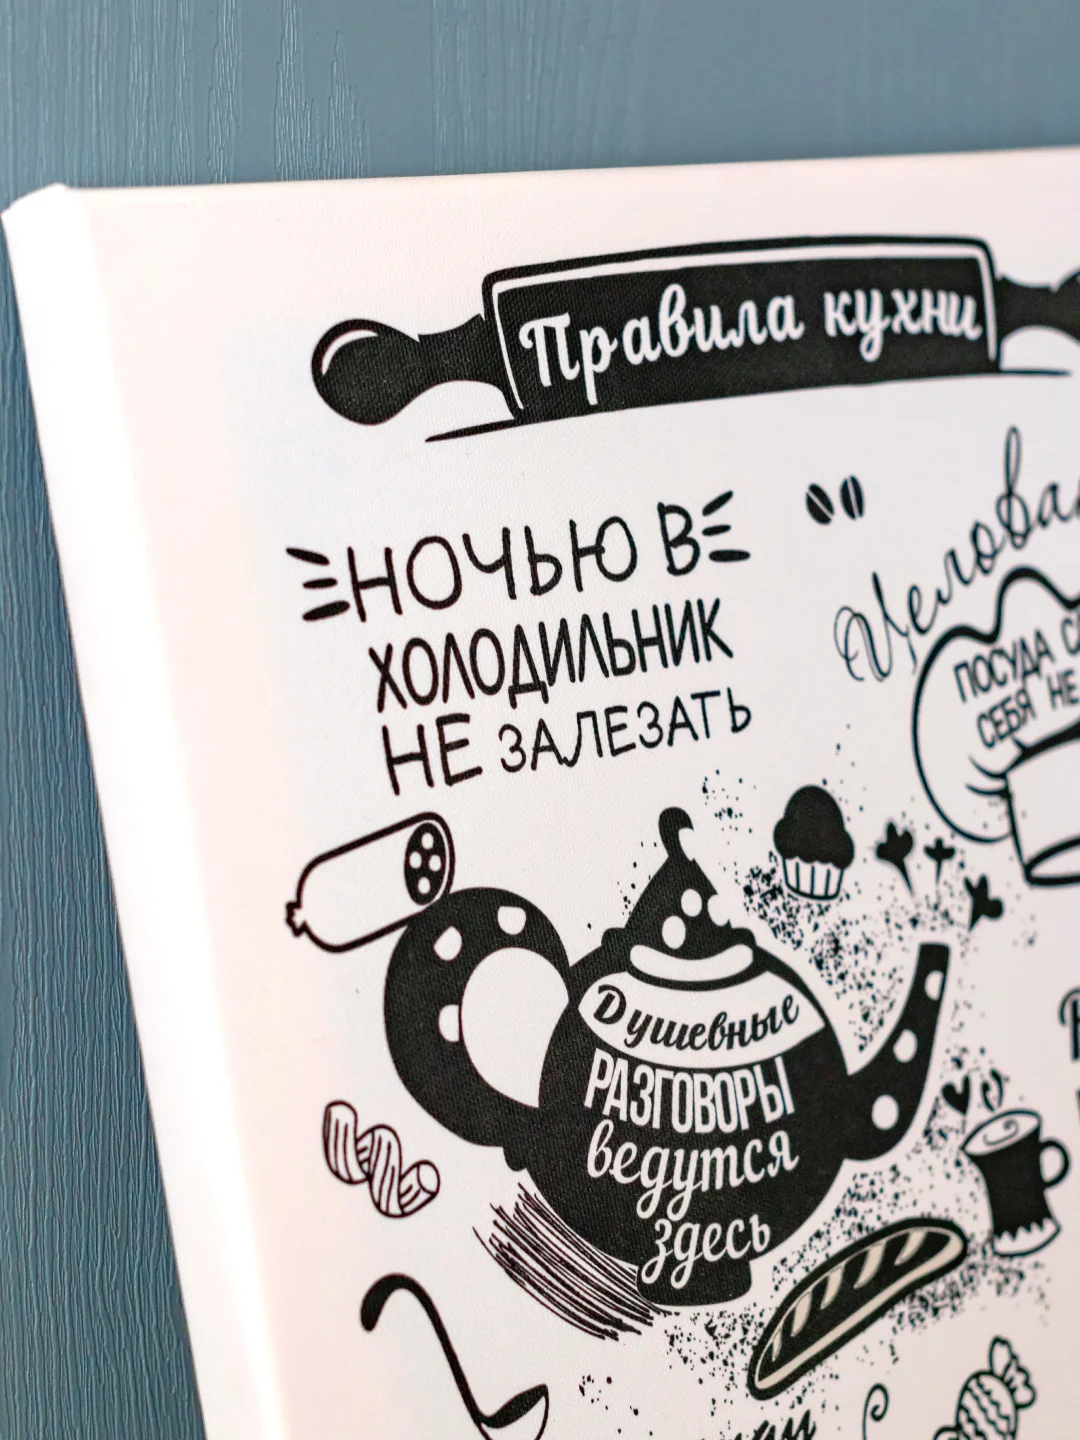 Правила кухни
НОЧЬЮ В
ХОЛОДИЛЬНИК
НЕ ЗАЛЕЗАТЬ
ПОСУДА
СЕБЯ НЕ
Душевные
РАЗГОВОРЫ
ведутся
здесь